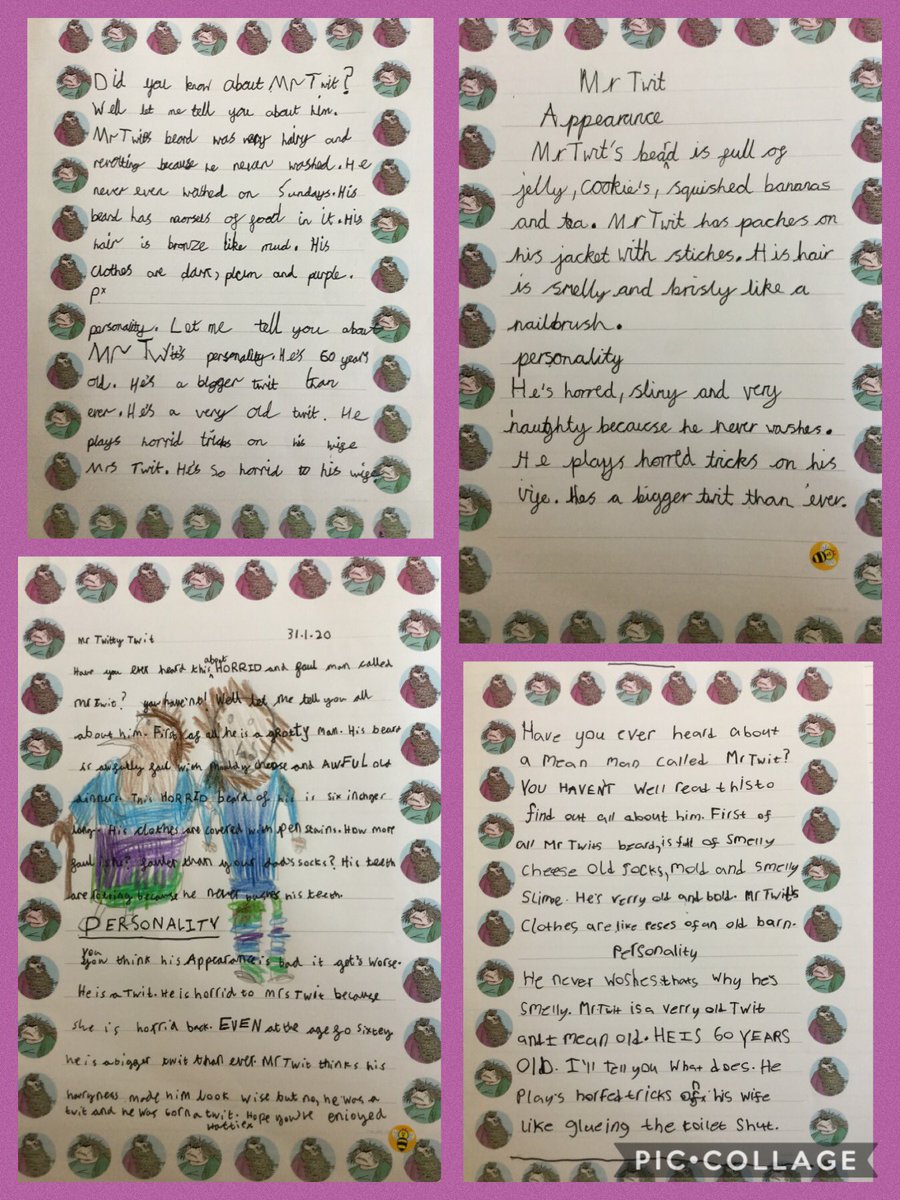 Did you know about Mr Twit?
Well let me tell you about him.
Mr Twit's beard was very hairy and
revolting because he never washed. He
never ever washed on Sundays. His
beard has morsels of food in it. His
hair is bronze like mud. His
clothes are dark, plum and purple.
personality. Let me tell you about
Mr Twit's personality. He's 60 years
old. He's a bigger twit than
ever. He's a very old twit. He
plays horrid tricks on his wife
Mrs Twit. He's so horrid to his wife
Mr Twit
Appearance
Mr Twit's beard is full of
jelly, cookie's, squished bananas
and tea. Mr Twit has paches on
his jacket with stiches. His hair
is smelly and brisly like a
nailbrush.
personality
He's horred, slimy and very
naughty because he never washes.
He plays horred tricks on his
vife. Hes a bigger twit than ever.
Mr Twitty Twit 31.1.20
Have you ever heard this about HORRID and foul man called
mr Twit? you have'nt! Well let me tell you all
about him. First of all he is a grotty man. His beard
is awfully foul with mouldy cheese and AWFUL old
dinners. This HORRID beard of his is six inches
long. His clothes are covered with pen stains. How more
foul is he? fouler than your dad's socks? His teeth
are because he never his teeth.
PERSONALITY
you think his Appearance is bad it get's worse.
He is a Twit. He is horrid to mrs Twit because
she is horrid back. EVEN at the age of sixty
he is a bigger twit than ever. Mr Twit thinks his
hairyness made him look wise but no, he was a
twit and he was born a twit. Hope you've enjoyed
Have you ever heard about
a mean man called Mr Twit?
YOU HAVEN'T Well read this to
find out all about him. First of
all Mr Twits beard, is full of smelly
cheese old socks, mold and smelly
slime. He's verry old and bold. Mr Twit's
Clothes are like peses of an old barn.
Personality
He never woshes thats why he's
smelly. Mr Twit is a verry old Twit
and I mean old. HE IS 60 YEARS
OLD. I'll tell you what does. He
Play's horred tricks on his wife
like glueing the toilet shut.
PIC•COLLAGE